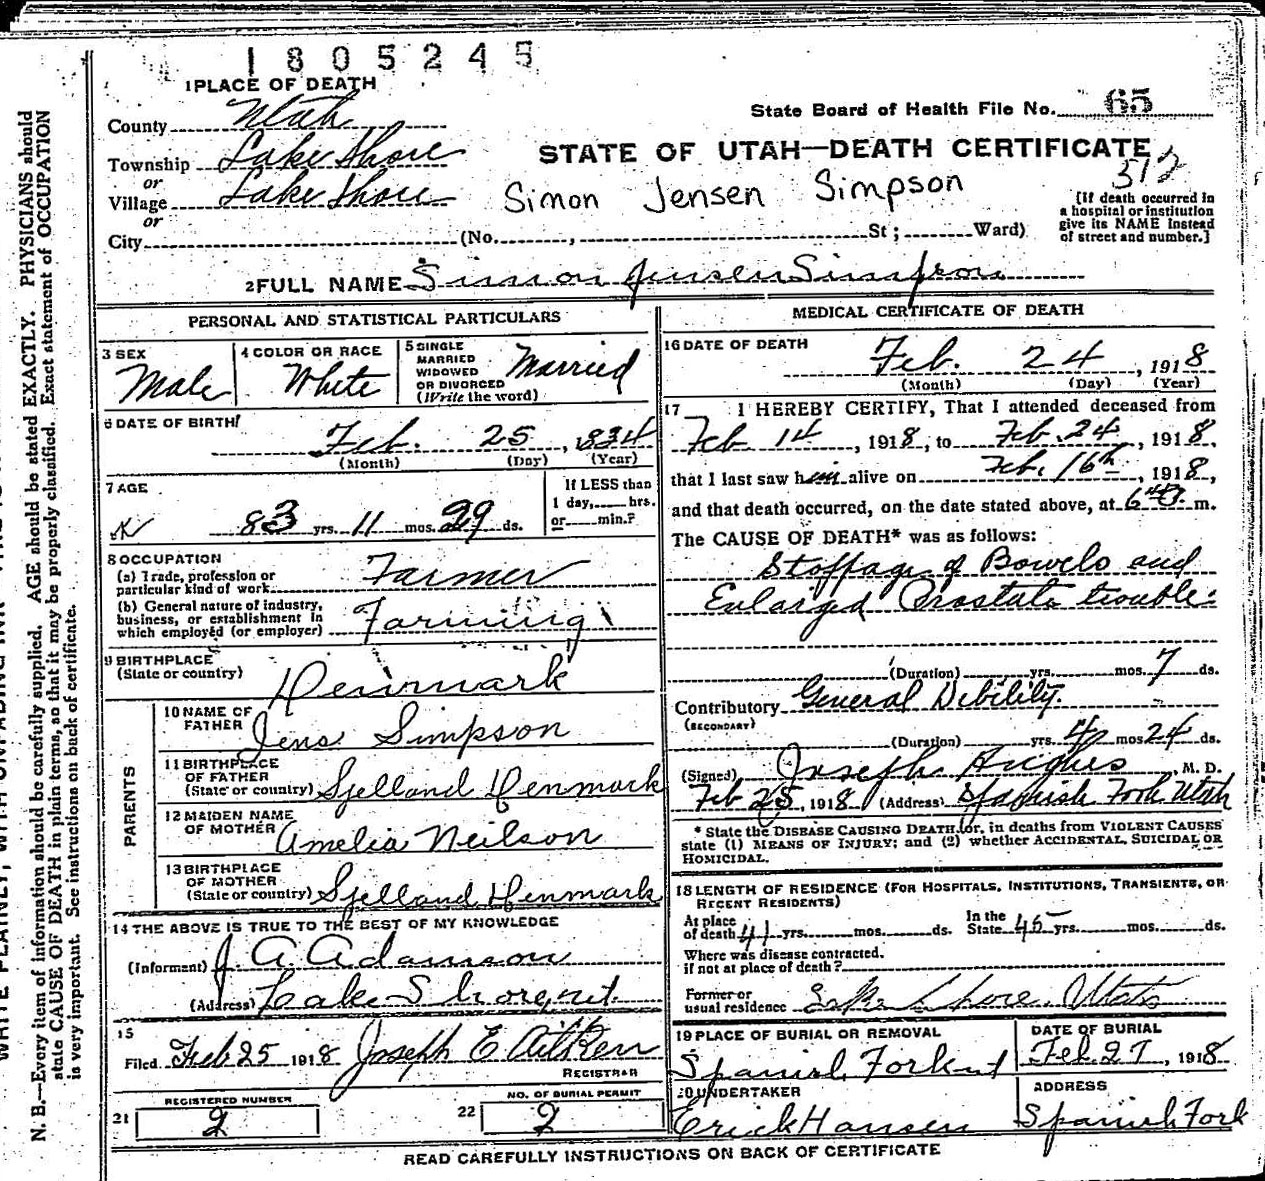 1805245
1 PLACE OF DEATH
State Board of Health File No. 65
County Utah
Township Lake Shore
STATE OF UTAH—DEATH CERTIFICATE
or
312
Village Lake Shore
Simon Jensen Simpson
or
City (No. , St ; Ward)
[If death occurred in
a hospital or institution
give its NAME instead
of street and number.]
2 FULL NAME Simon Jensen Simpson
PERSONAL AND STATISTICAL PARTICULARS
3 SEX
Male
4 COLOR OR RACE
White
5 SINGLE
MARRIED
WIDOWED
OR DIVORCED
(Write the word)
Married
6 DATE OF BIRTH
Feb. 25, 1834
(Month) (Day) (Year)
7 AGE
83 yrs. 11 mos. 29 ds.
If LESS than
1 day, hrs.
or min.?
8 OCCUPATION
(a) Trade, profession or
particular kind of work Farmer
(b) General nature of industry,
business, or establishment in
which employed (or employer) Farming
9 BIRTHPLACE
(State or country) Denmark
PARENTS
10 NAME OF
FATHER Jens Simpson
11 BIRTHPLACE
OF FATHER
(State or country) Sjelland Denmark
12 MAIDEN NAME
OF MOTHER Amelia Neilson
13 BIRTHPLACE
OF MOTHER
(State or country) Sjelland Denmark
14 THE ABOVE IS TRUE TO THE BEST OF MY KNOWLEDGE
(Informent) J. A. Adamson
(Address) Lake Shore, ut.
15
Filed Feb 25 1918 Joseph E Aitken
REGISTRAR
REGISTERED NUMBER
21 2
NO. OF BURIAL PERMIT
22 2
MEDICAL CERTIFICATE OF DEATH
16 DATE OF DEATH
Feb. 24, 1918
(Month) (Day) (Year)
17 I HEREBY CERTIFY, That I attended deceased from
Feb 14, 1918, to Feb. 24, 1918,
that I last saw him alive on Feb. 16th, 1918,
and that death occurred, on the date stated above, at 6 40 m.
The CAUSE OF DEATH* was as follows:
Stoffage of Bowels and
Enlarged Prostate trouble.
(Duration) yrs. mos. 7 ds.
Contributory General Debility.
(SECONDARY)
(Duration) yrs. 4 mos. 24 ds.
(Signed) Joseph Hughes M. D.
Feb 25, 1918 (Address) Spanish Fork Utah
* State the DISEASE CAUSING DEATH, or, in deaths from VIOLENT CAUSES
state (1) MEANS OF INJURY; and (2) whether ACCIDENTAL, SUICIDAL OR
HOMICIDAL.
18 LENGTH OF RESIDENCE (FOR HOSPITALS, INSTITUTIONS, TRANSIENTS, OR
RECENT RESIDENTS)
At place
of death 41 yrs. mos. ds. In the
State 45 yrs. mos. ds.
Where was disease contracted.
if not at place of death?
Former or
usual residence Lake Shore. Utah
19 PLACE OF BURIAL OR REMOVAL
Spanish Fork ut
DATE OF BURIAL
Feb. 27, 1918
20 UNDERTAKER
Erick Hansen
ADDRESS
Spanish Fork
READ CAREFULLY INSTRUCTIONS ON BACK OF CERTIFICATE
N. B.—Every item of information should be carefully supplied. AGE should be stated EXACTLY. PHYSICIANS should
state CAUSE OF DEATH in plain terms, so that it may be properly classified. Exact statement of OCCUPATION
is very important. See instructions on back of certificate.